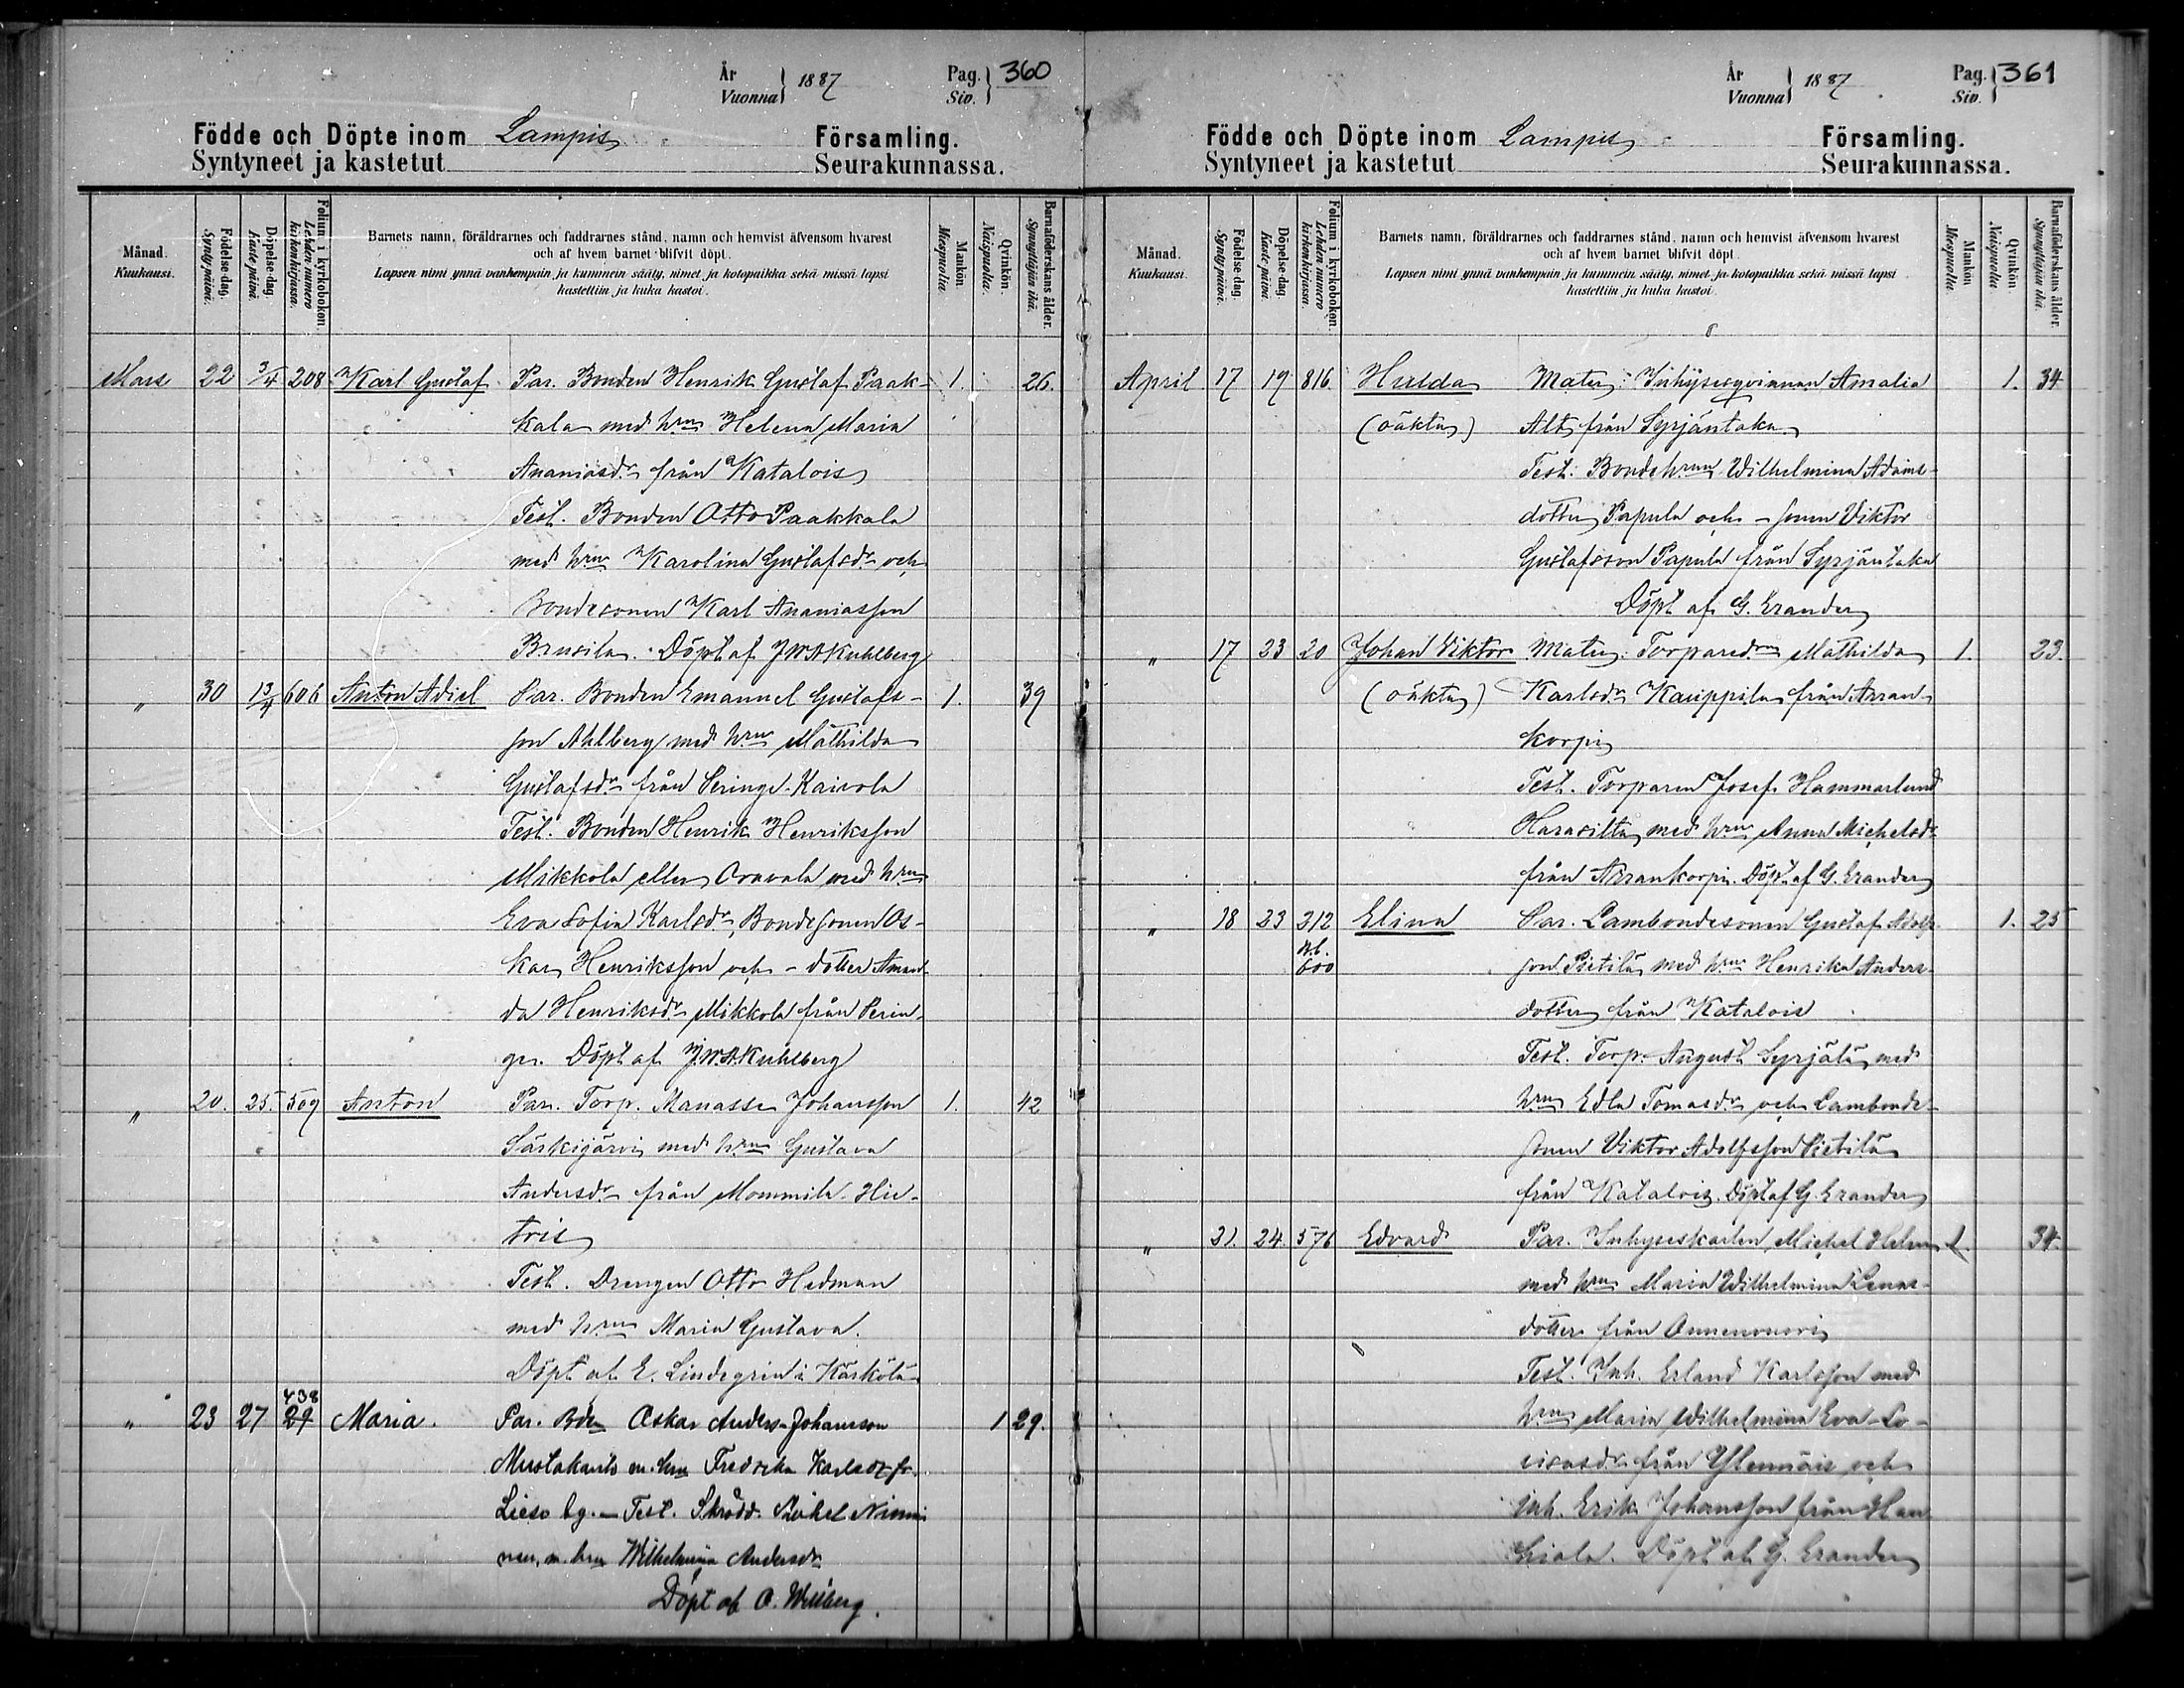 År
Vuonna } 1887
Pag.
Siv. } 360
Födde och Döpte inom Lampis Församling.
Syntyneet ja kastetut Seurakunnassa.
Månad.
Kuukausi.
Födelse-dag.
Synty-päivä.
Döpelse-dag.
Kaste-päivä.
Folium i kyrkoboken.
Lehden numero
kirkonkirjassa.
Barnets namn, föräldrarnes och faddrarnes stånd, namn och hemvist äfvensom hvarest
och af hvem barnet blifvit döpt.
Lapsen nimi ynnä vanhempain ja kummein sääty, nimet ja kotopaikka sekä missä lapsi
kastettiin ja kuka kastoi.
Mankön.
Miespuolia.
Qvinkön.
Naispuolia.
Barnaföderskans ålder.
Synnyttäjän ikä.
Mars 22 3/4 208 Karl Gustaf Par. Bonden Henrik Gustaf Paak- 1. 26.
kala med hrn Helena Maria
Ananiasdr från Katalois
Test. Bonden Otto Paakkala
med hrn Karolina Gustafsdr och
Bondesonen Karl Ananiasson
Brusila. Döpt af J.W.A. Kuhlberg
" 30 13/4 606 Anton Adiel Par. Bonden Emanuel Gustafs- 1. 39
son Ahlberg med hrn Mathilda
Gustafsdr från Peringe-Kaivola
Test. Bonden Henrik Henriksson
Mikkola eller Oravala med hrn
Eva Sofia Karlsdr, Bondesonen Os-
kar Henriksson och - dotter Aman-
da Henriksdr Mikkola från Perin-
ge. Döpt af J.W.A. Kuhlberg
" 20. 25. 509 Anton Par. Torp. Manasse Johansson 1. 42
Särkijärvi med hrn Gustava
Andersdr från Mommila-Hie-
tois
Test. Drengen Otto Hedman
med hrn Maria Gustava.
Döpt af E. Lindegrén i Kärkölä
438
" 23 27 27 Maria. Par. Bdn Oskar Anders Johansson 1 29.
Mustakants m. hrn Fredrika Karlsdr fr.
Lieso by. - Test. Skrädd. Mikel Niemi-
nen, m. hrn Wilhelmina Andersdr
Döpt af O. Wellberg.
År
Vuonna } 1887
Pag.
Siv. } 361
Födde och Döpte inom Lampis Församling.
Syntyneet ja kastetut Seurakunnassa.
Månad.
Kuukausi.
Födelse-dag.
Synty-päivä.
Döpelse-dag.
Kaste-päivä.
Folium i kyrkoboken.
Lehden numero
kirkonkirjassa.
Barnets namn, föräldrarnes och faddrarnes stånd, namn och hemvist äfvensom hvarest
och af hvem barnet blifvit döpt.
Lapsen nimi ynnä vanhempain ja kummein sääty, nimet ja kotopaikka sekä missä lapsi
kastettiin ja kuka kastoi.
Mankön.
Miespuolia.
Qvinkön.
Naispuolia.
Barnaföderskans ålder.
Synnyttäjän ikä.
April 17 19 816 Hulda Mater: Inhysesqvinnan Amalia 1. 34
(oäkta) Alt från Syrjäntaka
Test. Bondehrun Wilhelmina Adams-
dotter Papula och - sonen Viktor
Gustafsson Papula från Syrjäntaka
Döpt af G. Erander
" 17 23 20 Johan Viktor Mater: Torparedrn Mathilda 1. 23.
(oäkta) Karlsdr Kauppila från Arran-
korpi
Test. Torparen Josef Hammarlund
Harasilta med hrn Anna Michelsdr
från Arrankorpi. Döpt af G. Erander
" 18 23 212 Elina Par. Lambondesonen Gustaf Adolfs- 1. 25
N.b.
600 son Pietilä med hrn Henrika Anders-
dotter från Katalois
Test. Torp. August Syrjälä med
hrn Edla Tomasdr och Lambonde-
sonen Viktor Adolfsson Pietilä
från Katalois. Döpt af G. Erander
" 21. 24. 576 Edvard Par. Inhyseskarlen Michel Helen 1. 34.
med hrn Maria Wilhelmina Lenas-
dotter från
Test. Inh. Erland Karlsson med
hrn Maria Wilhelmina Eva-Lo-
visasdr från Ylennäis och
inh. Erik Johansson från Han-
kiala. Döpt af G. Erander